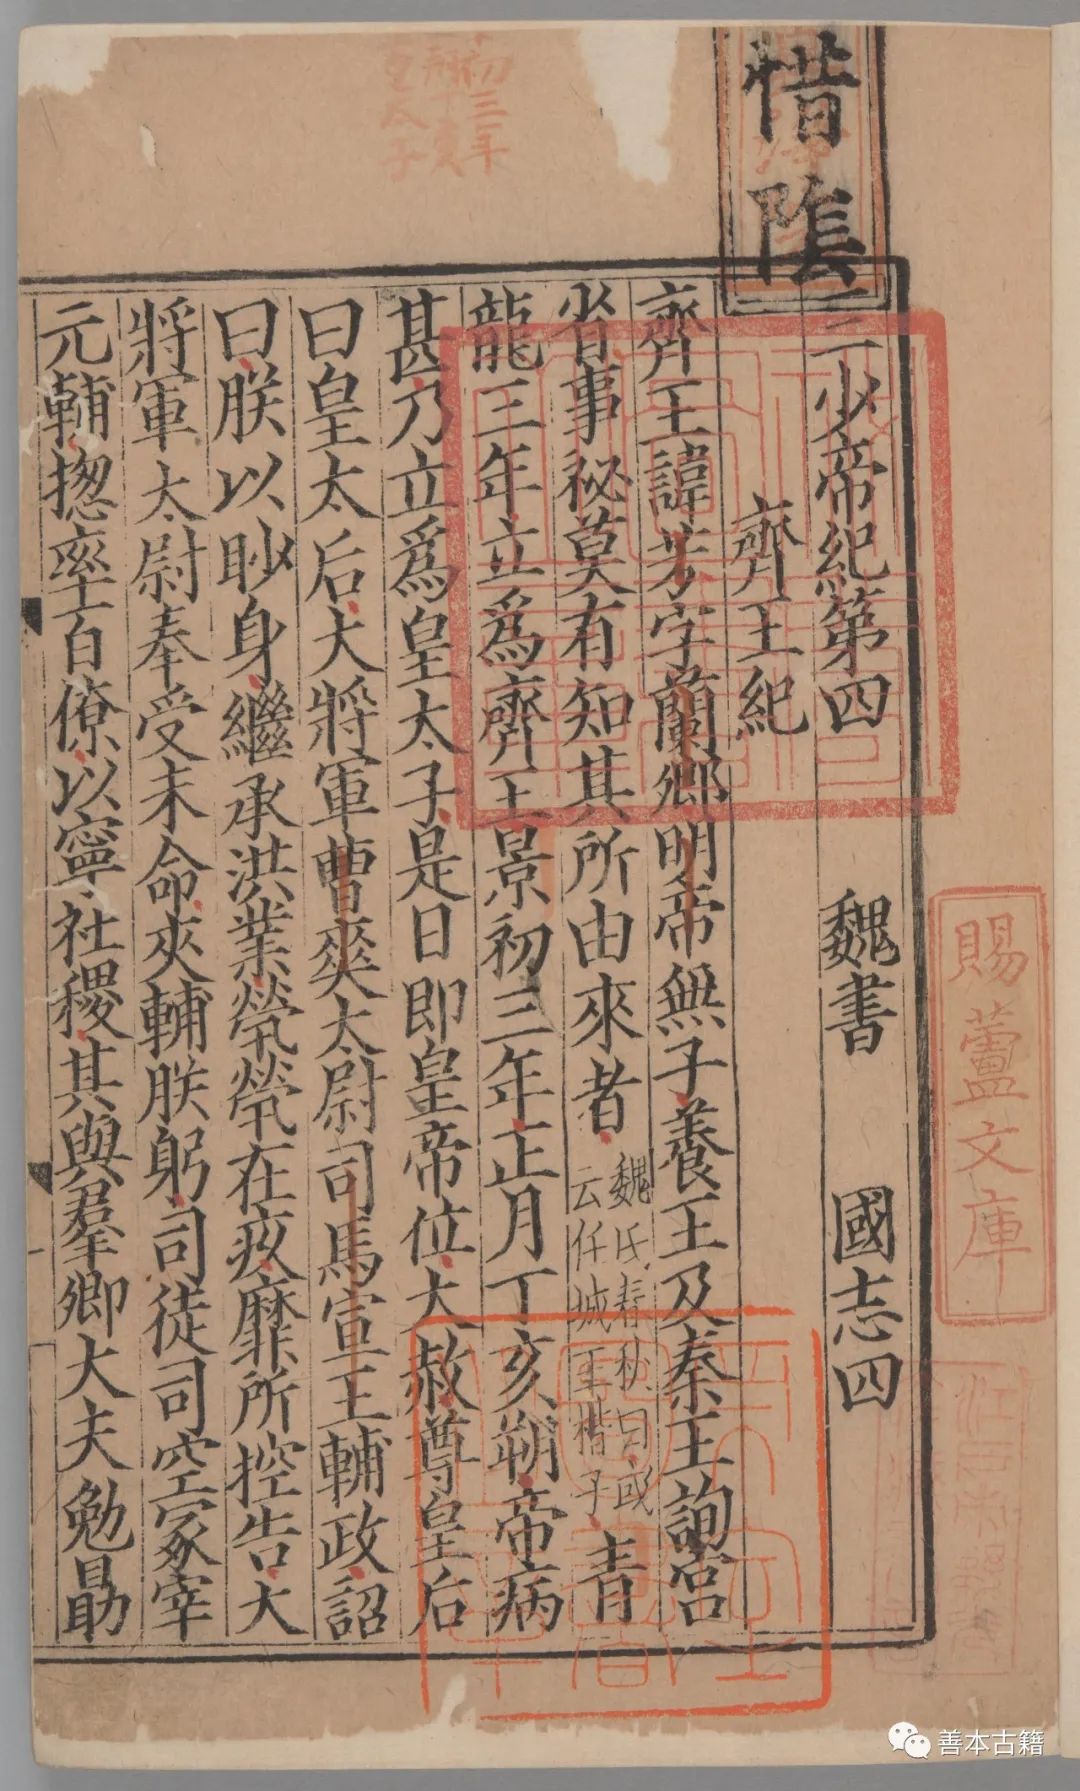 惜陰
三少帝紀第四 魏書 國志四
齊王紀
齊王諱芳字蘭卿明帝無子養王及秦王詢宮
省事秘莫有知其所由來者魏氏春秋曰或
云任城王楷子青
龍三年立爲齊王景初三年正月丁亥朔帝病
甚乃立爲皇太子是日即皇帝位大赦尊皇后
曰皇太后大將軍曹爽太尉司馬宣王輔政詔
曰朕以眇身繼承洪業煢煢在疚靡所控告大
將軍太尉奉受末命夾輔朕躬司徒司空冢宰
元輔揔率百僚以寧社稷其與羣卿大夫勉勗
賜蘆文庫
初三年
太子
善本古籍